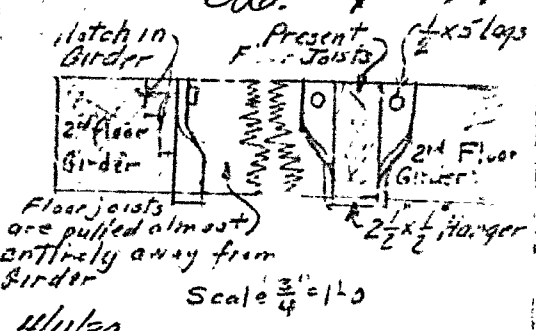 Notch in
Girder
Present
Floor Joists
1/2 x 5 Lags
2nd floor
Girder
2nd Floor
Girder
Floor joists
are pulled almost
entirely away from
Girder
2 1/2" x 1/2" Hanger
Scale 3/4" = 1'-0